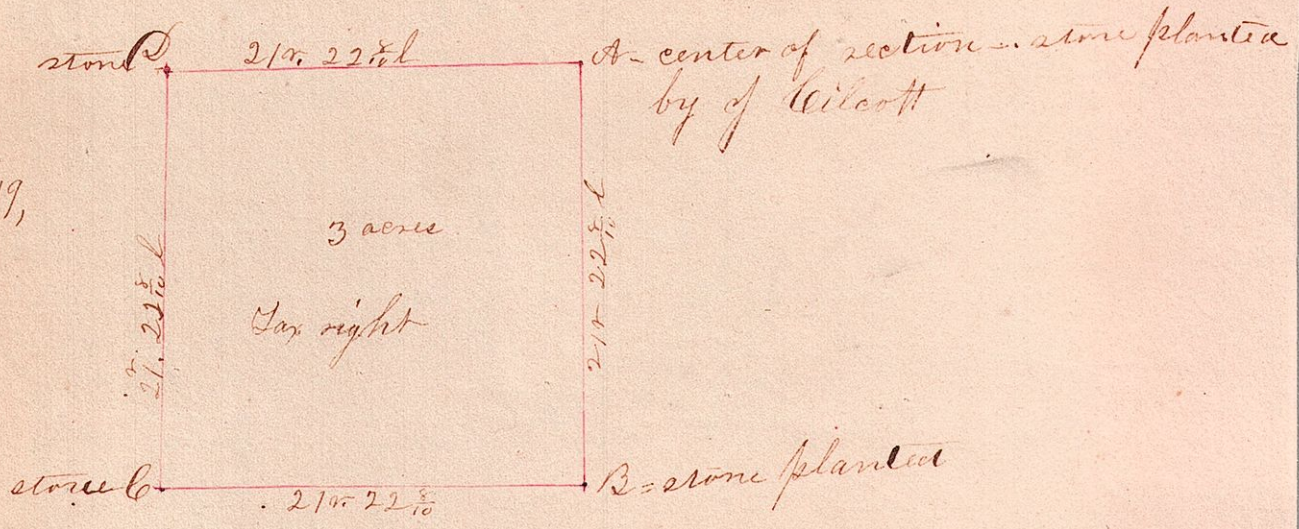 stone D
21r. 22 8/10 l
A - center of section - stone planted
by J Cilcott
9,
3 acres
Tax right
21r. 22 8/10 l
21r 22 8/10 l
stone C
21r. 22 8/10
B = stone planted